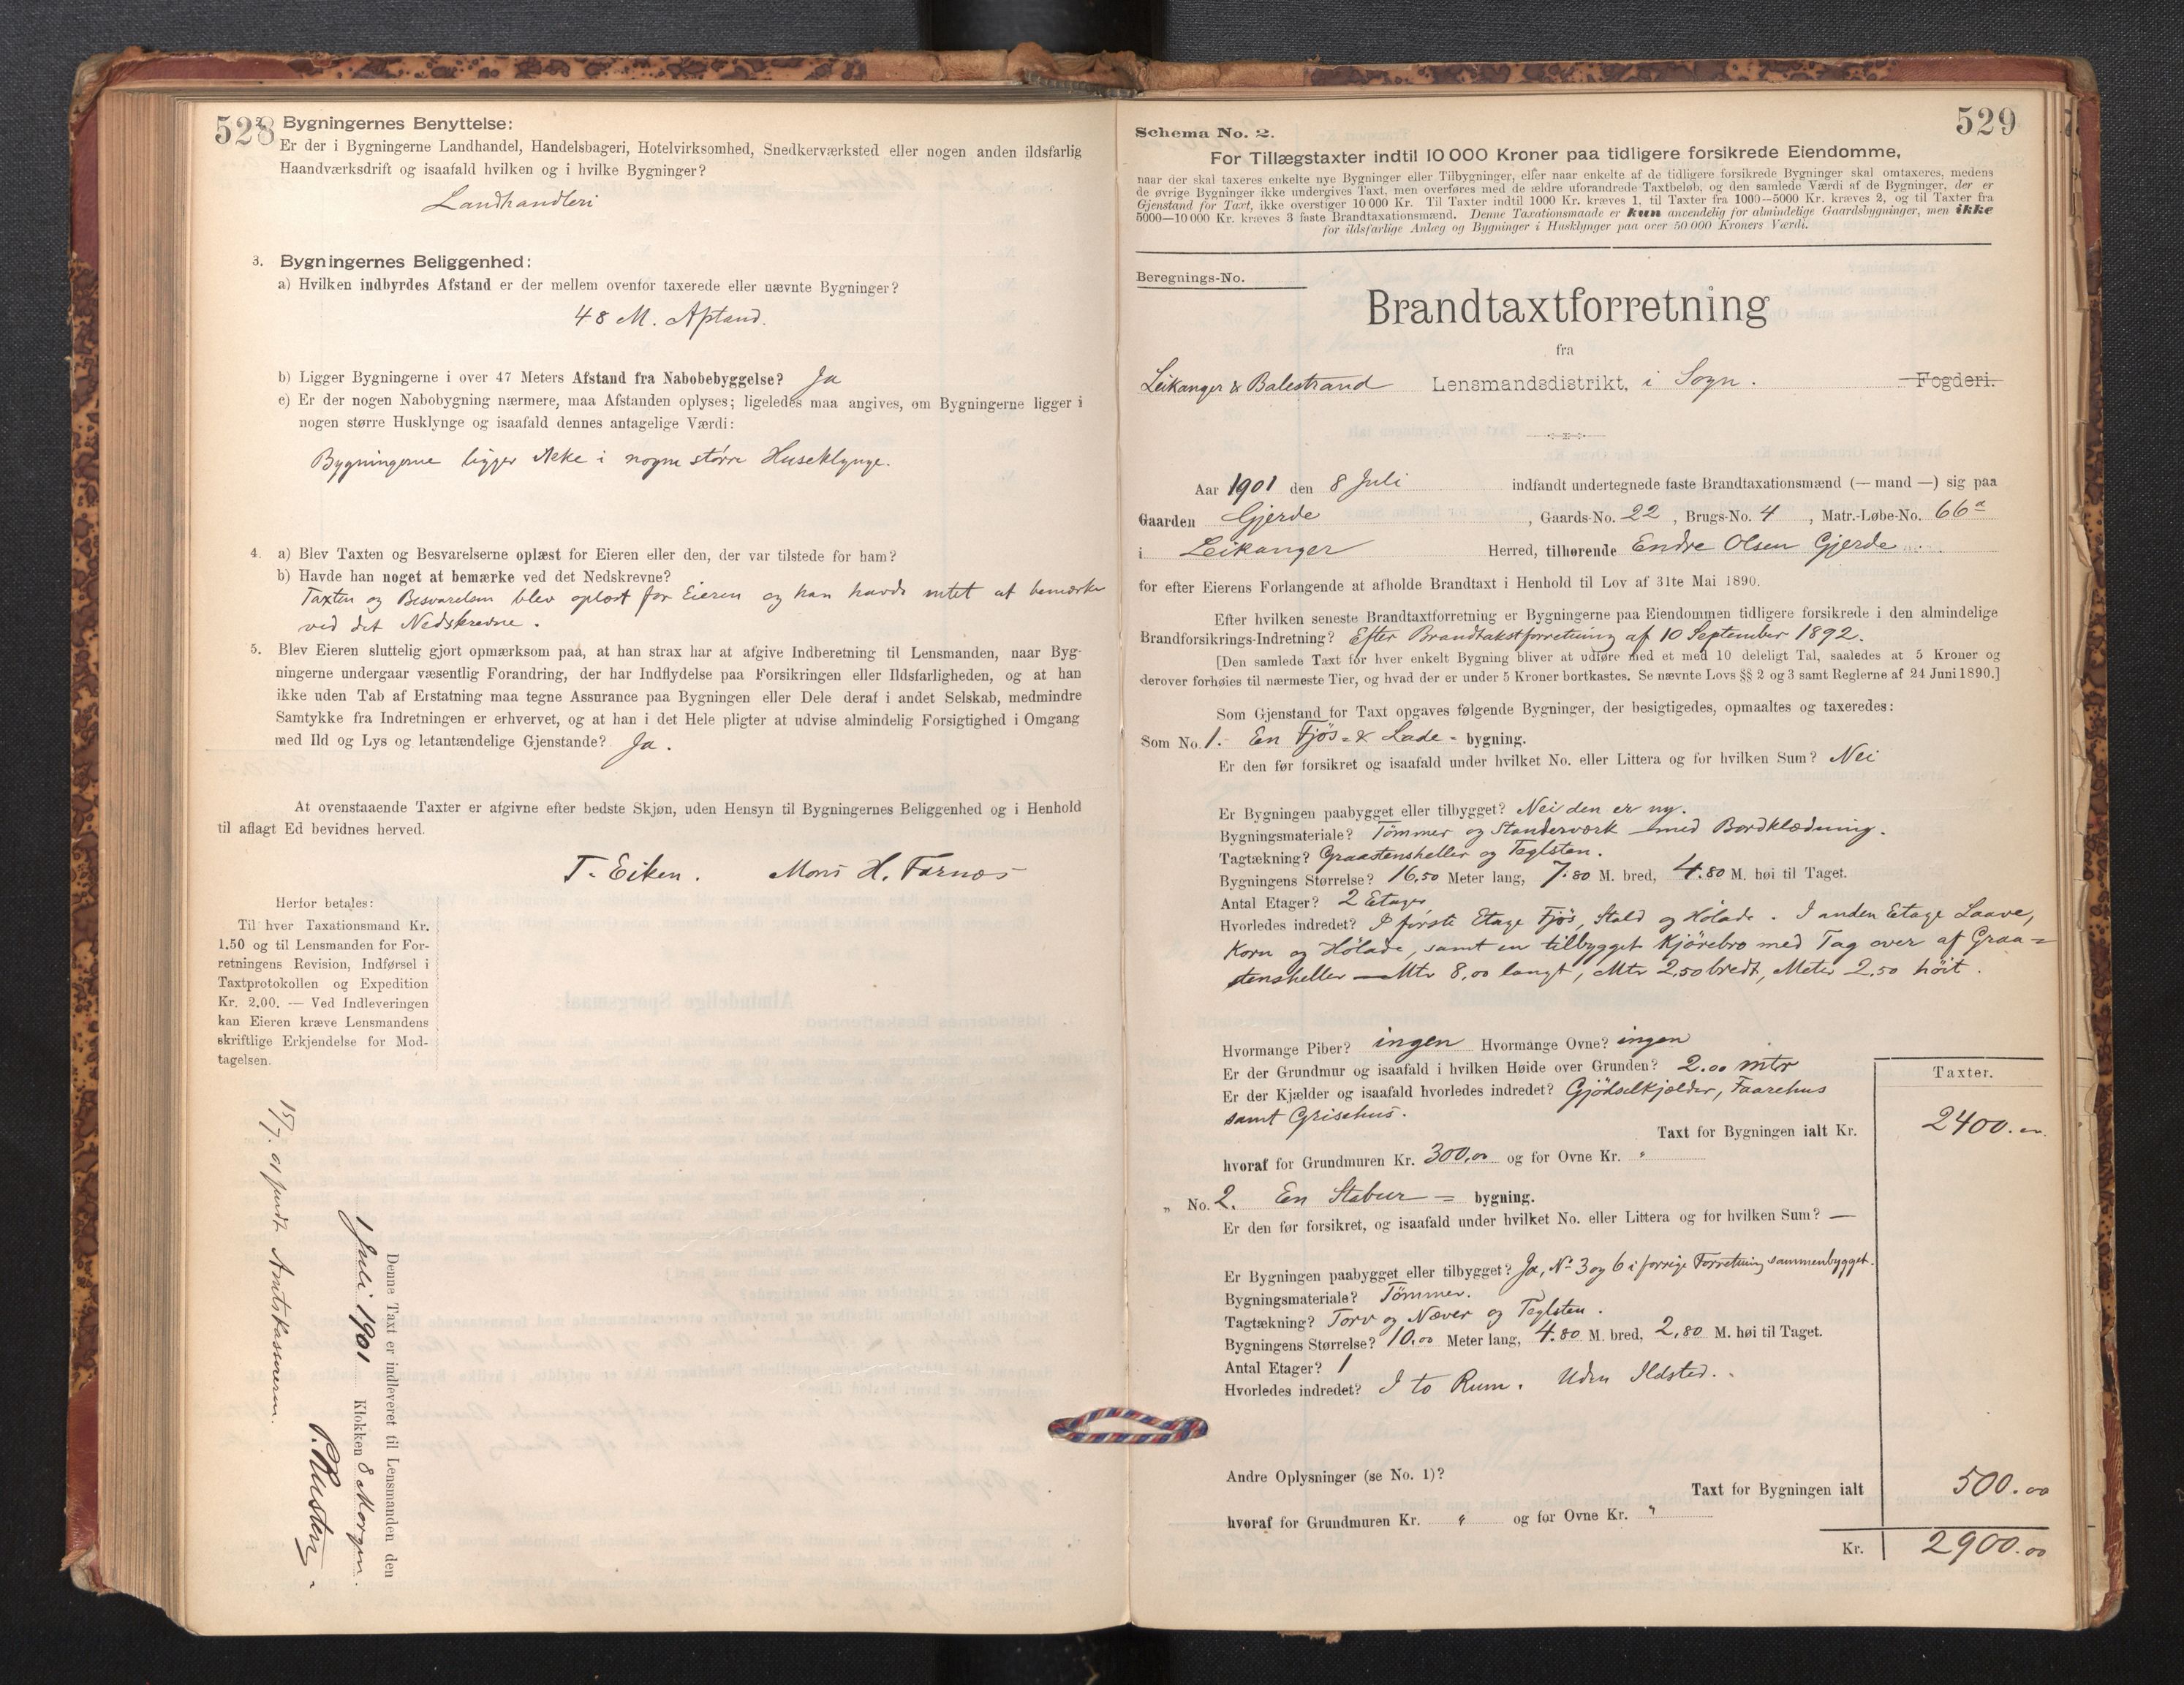 528
2. Bygningernes Benyttelse:
Er der i Bygningerne Landhandel, Handelsbageri, Hotelvirksomhed, Snedkerværksted eller nogen anden ildsfarlig
Haandværksdrift og isaafald hvilken og i hvilke Bygninger?
Landhandleri
3. Bygningernes Beliggenhed:
a) Hvilken indbyrdes Afstand er der mellem ovenfor taxerede eller nævnte Bygninger?
48 M. Afstand.
b) Ligger Bygningerne i over 47 Meters Afstand fra Nabobebyggelse? Ja
c) Er der nogen Nabobygning nærmere, maa Afstanden oplyses; ligeledes maa angives, om Bygningerne ligger i
nogen større Husklynge og isaafald dennes antagelige Værdi:
Bygningerne ligger ikke i nogen större Huseklynge.
4. a) Blev Taxten og Besvarelserne oplæst for Eieren eller den, der var tilstede for ham?
b) Havde han noget at bemærke ved det Nedskrevne?
Taxten og Besvarelsen blev oplæst for Eieren og han havde intet at bemærke
ved det Nedskrevne.
5. Blev Eieren sluttelig gjort opmærksom paa, at han strax har at afgive Indberetning til Lensmanden, naar Byg-
ningerne undergaar væsentlig Forandring, der har Indflydelse paa Forsikringen eller Ildsfarligheden, og at han
ikke uden Tab af Erstatning maa tegne Assurance paa Bygningen eller Dele deraf i andet Selskab, medmindre
Samtykke fra Indretningen er erhvervet, og at han i det Hele pligter at udvise almindelig Forsigtighed i Omgang
med Ild og Lys og letantændelige Gjenstande? Ja.
At ovenstaaende Taxter er afgivne efter bedste Skjøn, uden Hensyn til Bygningernes Beliggenhed og i Henhold
til aflagt Ed bevidnes herved.
T. Eiken. Mons H. Farnæs
Herfor betales:
Til hver Taxationsmand Kr.
1.50 og til Lensmanden for For-
retningens Revision, Indførsel i
Taxtprotokollen og Expedition
Kr. 2.00. — Ved Indleveringen
kan Eieren kræve Lensmandens
skriftlige Erkjendelse for Mod-
tagelsen.
Denne Taxt er indleveret til Lensmanden den
1 Juli 1901 Klokken 8 Morgen.
15/7. 01 sendt Amtskassereren.
529
Schema No. 2.
For Tillægstaxter indtil 10 000 Kroner paa tidligere forsikrede Eiendomme,
naar der skal taxeres enkelte nye Bygninger eller Tilbygninger, eller naar enkelte af de tidligere forsikrede Bygninger skal omtaxeres, medens
de øvrige Bygninger ikke undergives Taxt, men overføres med de ældre uforandrede Taxtbeløb, og den samlede Værdi af de Bygninger, der er
Gjenstand for Taxt, ikke overstiger 10 000 Kr. Til Taxter indtil 1000 Kr. kræves 1, til Taxter fra 1000—5000 Kr. kræves 2, og til Taxter fra
5000—10 000 Kr. kræves 3 faste Brandtaxationsmænd. Denne Taxationsmaade er kun anvendelig for almindelige Gaardsbygninger, men ikke
for ildsfarlige Anlæg og Bygninger i Husklynger paa over 50 000 Kroners Værdi.
Beregnings-No.
Brandtaxtforretning
fra
Leikanger & Balestrand Lensmandsdistrikt, i Sogn. Fogderi.
Aar 1901 den 8 Juli indfandt undertegnede faste Brandtaxationsmænd (— mand —) sig paa
Gaarden Gjerde, Gaards-No. 22, Brugs-No. 4, Matr.-Løbe-No. 66a
i Leikanger Herred, tilhørende Endre Olsen Gjerde.
for efter Eierens Forlangende at afholde Brandtaxt i Henhold til Lov af 31te Mai 1890.
Efter hvilken seneste Brandtaxtforretning er Bygningerne paa Eiendommen tidligere forsikrede i den almindelige
Brandforsikrings-Indretning? Efter Brandtakstforretning af 10 September 1892.
[Den samlede Taxt for hver enkelt Bygning bliver at udføre med et med 10 deleligt Tal, saaledes at 5 Kroner og
derover forhøies til nærmeste Tier, og hvad der er under 5 Kroner bortkastes. Se nævnte Lovs §§ 2 og 3 samt Reglerne af 24 Juni 1890.]
Som Gjenstand for Taxt opgaves følgende Bygninger, der besigtigedes, opmaaltes og taxeredes:
Som No. 1. En Fjös- & Lade- bygning.
Er den før forsikret og isaafald under hvilket No. eller Littera og for hvilken Sum? Nei
Er Bygningen paabygget eller tilbygget? Nei den er ny.
Bygningsmateriale? Tömmer og Standerværk med Bordklædning.
Tagtækning? Graastensheller og Teglsten.
Bygningens Størrelse? 16.50 Meter lang, 7.80 M. bred, 4.80 M. høi til Taget.
Antal Etager? 2 Etager
Hvorledes indredet? I förste Etage Fjös, Stald og Hölade. I anden Etage Laave,
Korn og Hölade, samt en tilbygget Kjörebro med Tag over af Graa=
stensheller — Mtr 8,00 langt, Mtr 2,50 bredt, Meter 2,50 höit.
Hvormange Piber? ingen Hvormange Ovne? ingen
Er der Grundmur og isaafald i hvilken Høide over Grunden? 2.00 mtr
Er der Kjælder og isaafald hvorledes indredet? Gjödselkjælder, Faarehus
samt Grisehus.
Taxter.
Taxt for Bygningen ialt Kr. 2400.00
hvoraf for Grundmuren Kr. 300.00 og for Ovne Kr. "
" No. 2. En Stabur= bygning.
Er den før forsikret, og isaafald under hvilket No. eller Littera og for hvilken Sum? —
Er Bygningen paabygget eller tilbygget? Ja, No 3 og 6 i forrige Forretning sammenbygget.
Bygningsmateriale? Tömmer.
Tagtækning? Torv og Næver og Teglsten.
Bygningens Størrelse? 10.00 Meter lang, 4.80 M. bred, 2,80 M. høi til Taget.
Antal Etager? 1
Hvorledes indredet? I to Rum. Uden Ildsted.
Andre Oplysninger (se No. 1)?
Taxt for Bygningen ialt 500.00
hvoraf for Grundmuren Kr. " og for Ovne Kr. "
Kr. 2900.00